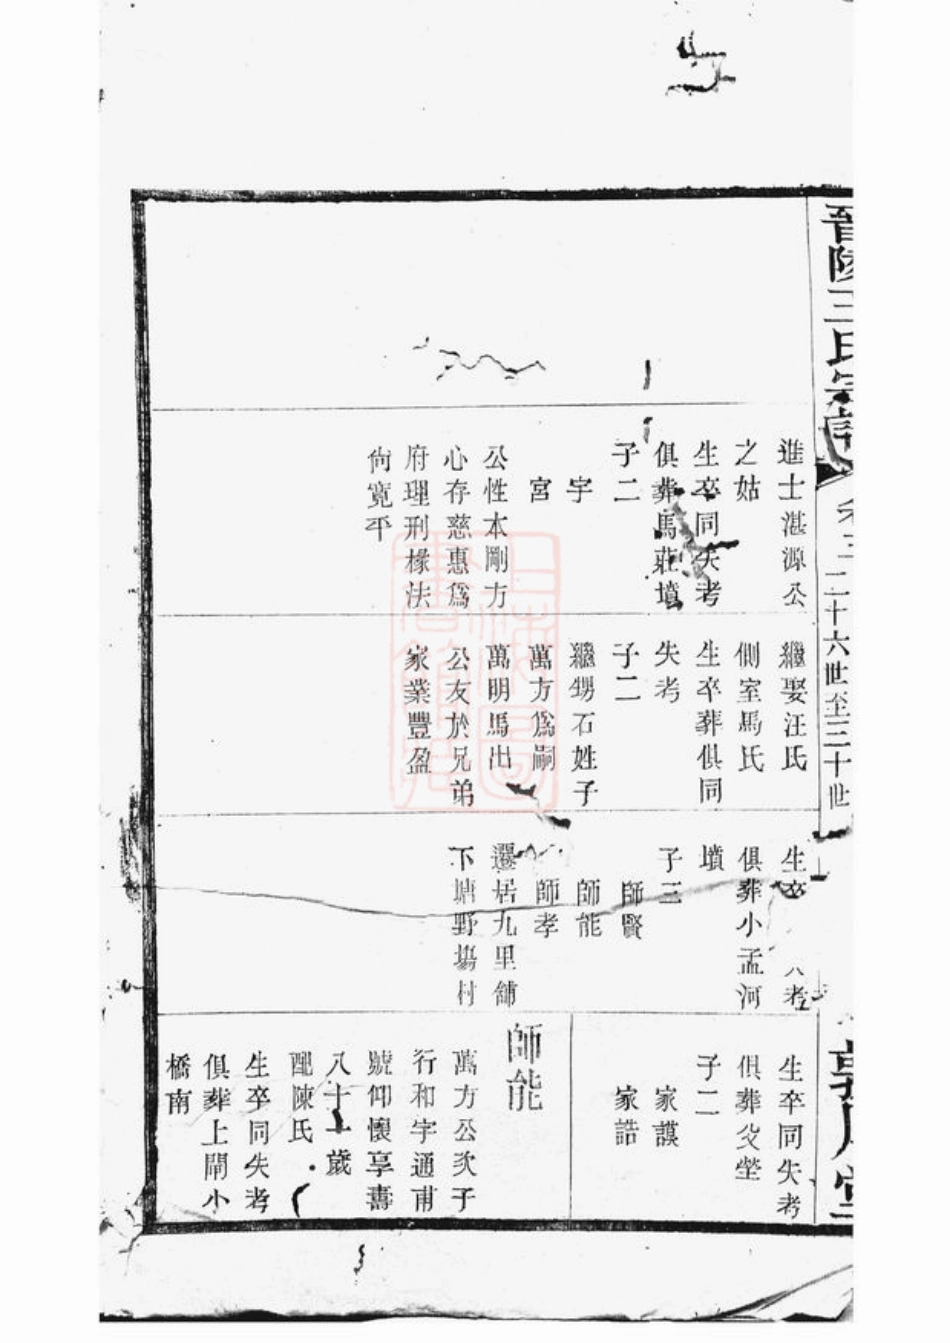 晉陵王氏宗譜
卷三
二十六世至三十世
進士湛源公
之姑
生卒同失考
俱葬馬莊墳
子二
宇
宮
公性本剛方
心存慈惠爲
府理刑椽法
尙寬平
繼娶汪氏
側室馬氏
生卒葬俱同
失考
子二
繼甥石姓子
萬方爲嗣
萬明馬出
公友於兄弟
家業豐盈
生卒
考
俱葬小孟河
墳
子三
師賢
師能
師孝
遷居九里舖
下塘野塲村
生卒同失考
俱葬父塋
子二
家謨
家誥
師能
萬方公次子
行和字通甫
號仰懷享壽
八十
歲
配陳氏
生卒同失考
俱葬上閘小
橋南